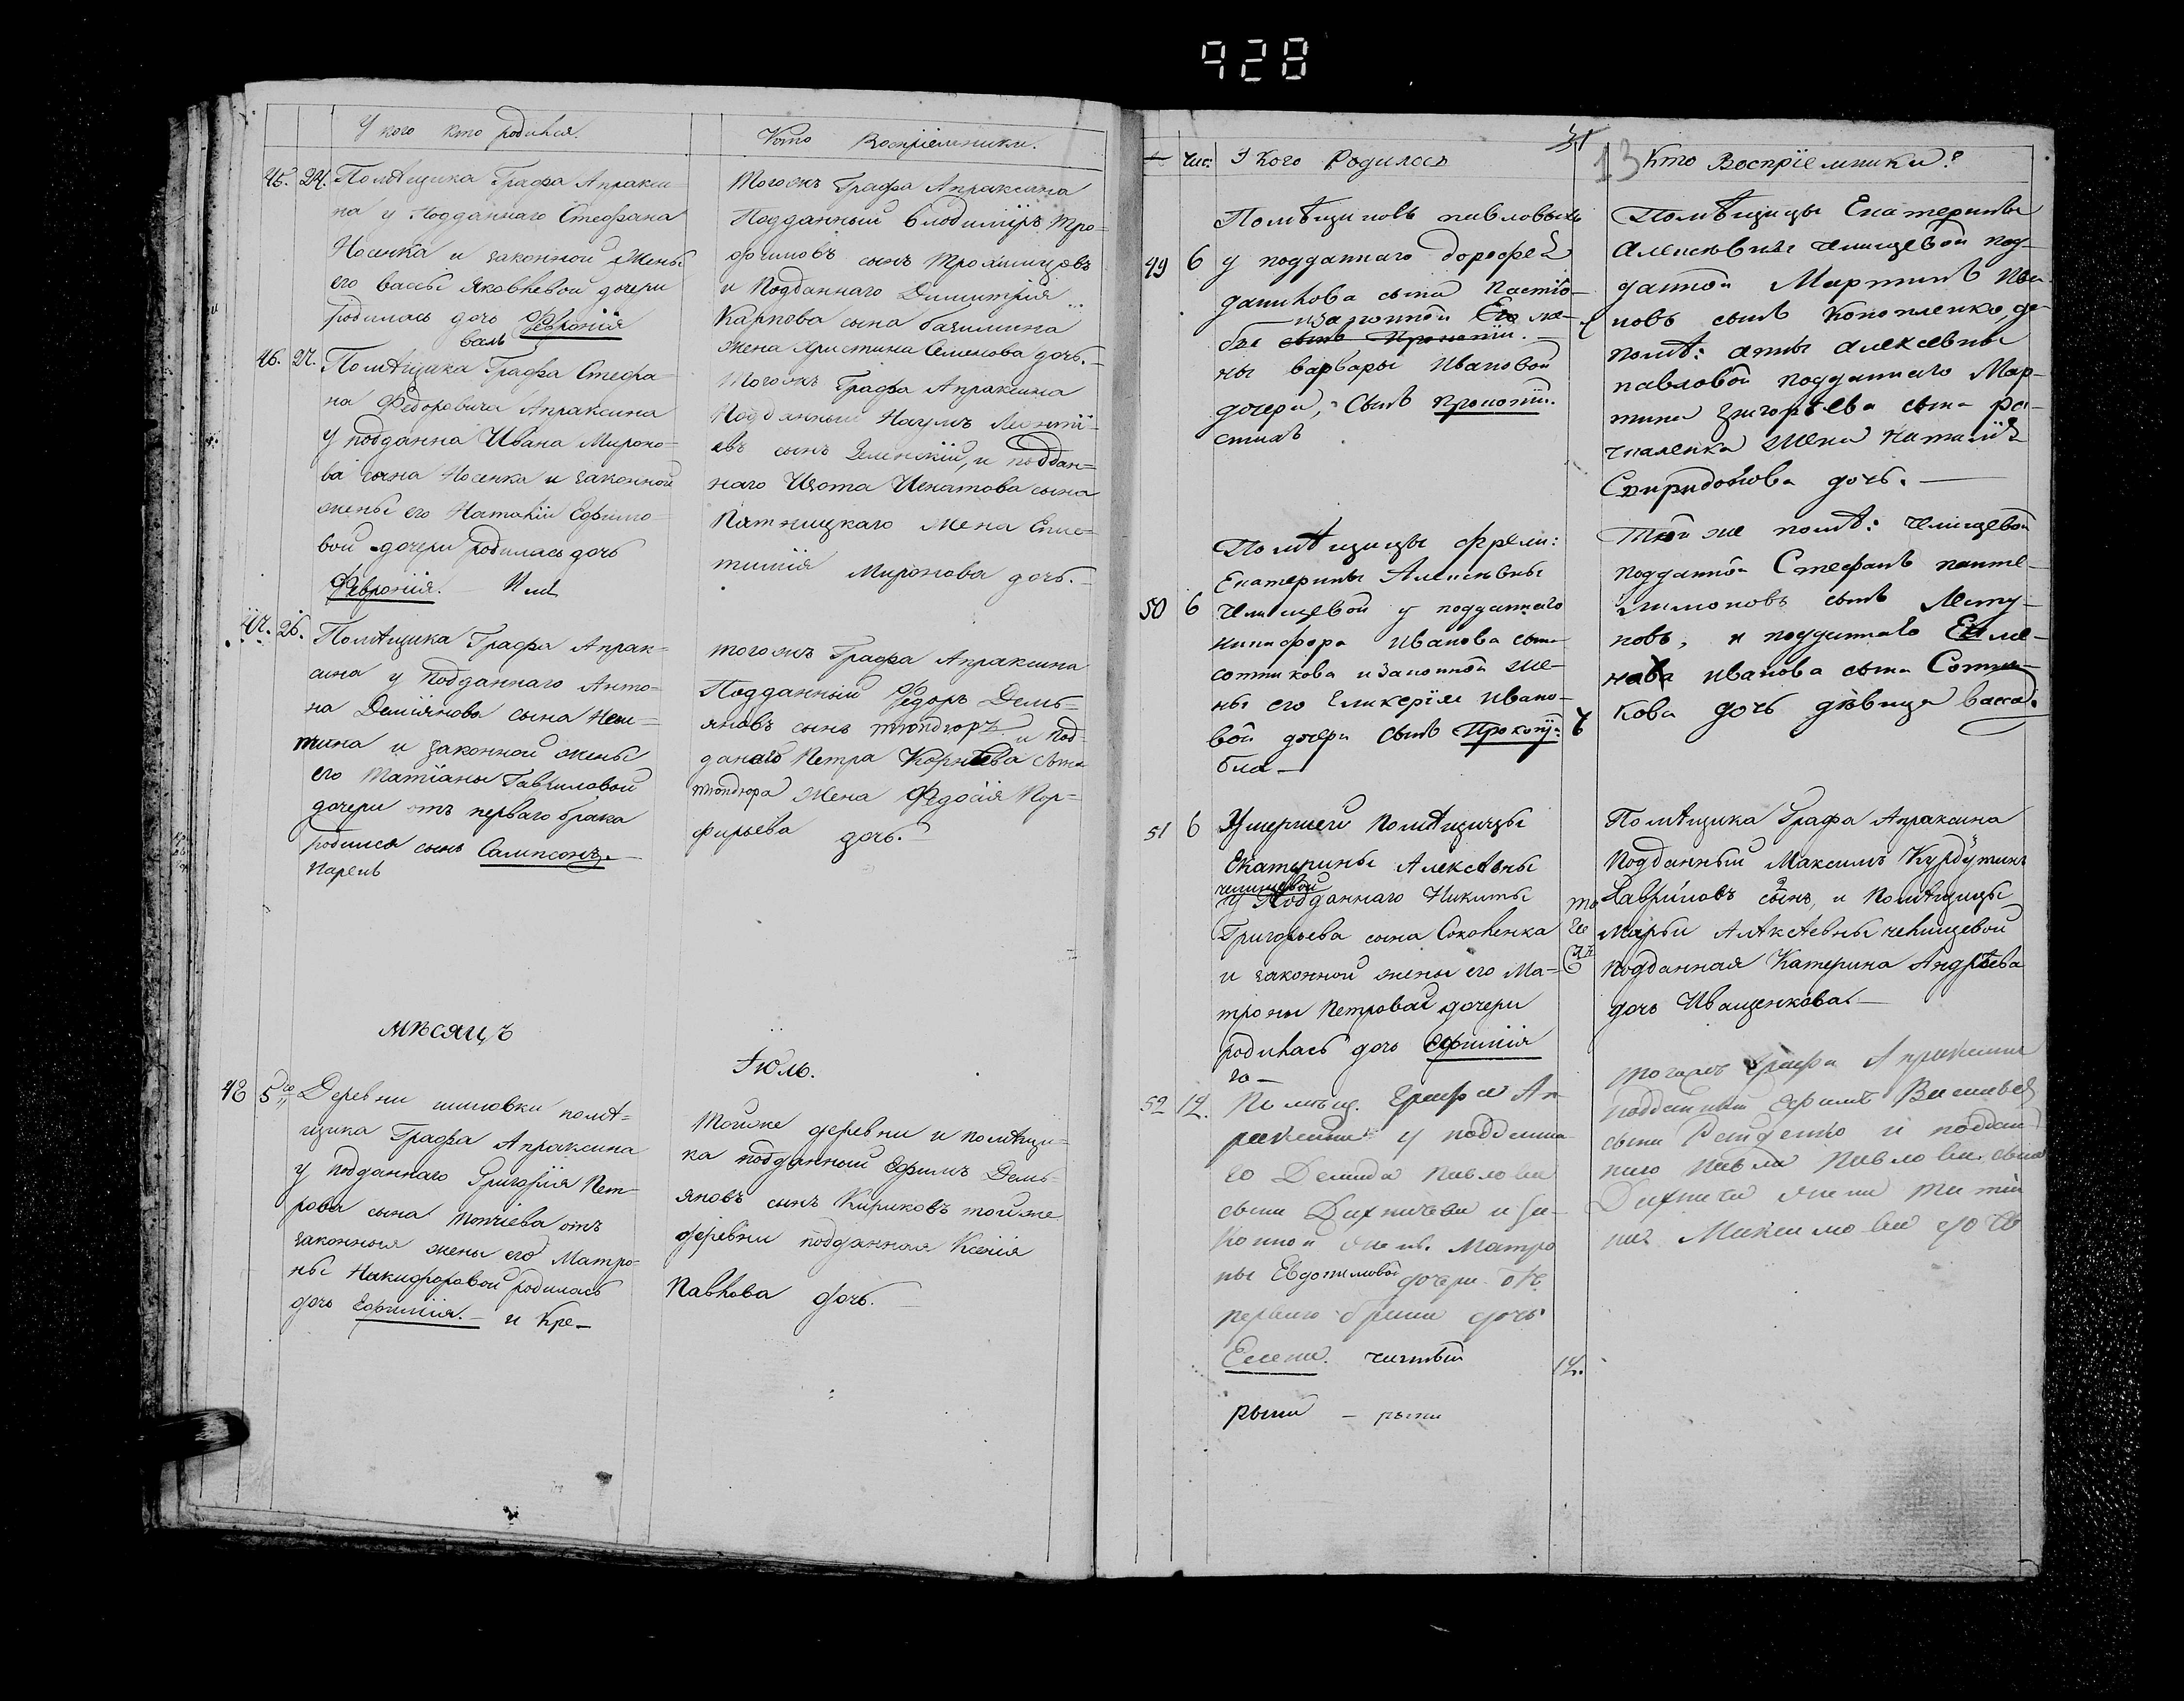 928
У кого кто родился.
Кто Восприемники.
45. 24. Помѣщика Графа Апракси-
на у Подданнаго Стефана
Носенка и законной Жены
его вассы Яковлевой дочери
родилась дочь Февронія
Тогожъ Графа Апраксина
Подданный Владимиръ Тро-
фимовъ сынъ
и Подданнаго Димитрія
Карпова сына
жена Христина Семенова дочь.
46. 27. Помѣщика Графа Стефа-
на Федоровича Апраксина
у подданна Ивана Миро­но-
ва сына Носенка и законной
жены его Наталіи Ефимо-
вой дочери родилась дочь
Февронія.
Тогожъ Графа Апраксина
Подданный Наумъ Леонті-
евъ сынъ Зеленскій, и поддан-
наго Изота Игнатова сына
Пятницкаго жена Епис-
тимія Миронова дочь.
47. 28. Помѣщика Графа Апрак-
сина у Подданнаго Анто-
на Даміянова сына
и законной жены
его Татіаны Гавриловой
дочери отъ перваго брака
родился сынъ Сампсонъ.
Парень
тогожъ Графа Апраксина
Подданный Федоръ Демь-
яновъ сынъ и под-
данаго Петра Корнѣева сына
жена Федосія Пор-
фирьева дочь.
мѣсяцъ
Іюль.
48 5го Деревни шиловки помѣ-
щика Графа Апраксина
у подданнаго Григорія Пет-
рова сына отъ
законныя жены его Матро-
ны Никифоровой родилась
дочь Ефимія. и Кре-
Тойже деревни и помѣщи-
ка подданный Ефимъ Демь-
яновъ сынъ Кириковъ тойже
деревни подданная Ксенія
Павлова дочь.
31
13
Чис. У Кого Родилось
Кто Воспріемники?
Помѣщиковъ павловыхъ
49 6 у подданнаго дорофея
данилова сына
изаконной Его же-
ны варвары Ивановой
дочери, сынъ
Помѣщицы Екатерины
Алексѣвны челищевой под-
данной Мартинъ Ива-
новъ сынъ Конопленко, да
помѣ: анны алексевны
павловой подданнаго Мар-
тина григорьева сына
жена наталія
Спиридонова дочь.
Помѣщицы фрели:
Екатерины Алексѣвны
50 6 челищевой у подданнаго
никифора иванова сына
сотникова изаконной же-
ны его Гликеріи ивано-
вой дочери сынъ Прокопій
Той же помѣ: челищевой
подданной Стефанъ панте-
лимоновъ сынъ
новъ, и подданнаго
иванова сына Сотни-
кова дочь дѣвица васса.
51 6 Умершей Помѣщицы
Екатерины Алексѣвны
челищевой
у Подданнаго Никиты
Григорьева сына Соколенка
и законной жены его Ма-
троны Петровой дочери
родилась дочь Ефимія
Помѣщика Графа Апраксина
Подданный Максимъ
Гавриловъ сынъ, и Помѣщицы
Марьи Алѣксѣевны челищевой
подданная Катерина Андрѣева
дочь Иващенкова.
52 12. Помѣщ. Графа Ап-
раксина у подданна-
го Демида Павлова
сына и За-
конной жены Матро
ны Евдокимовой дочери отъ
перваго брака дочь
Елена.
тогожъ Графа Апраксина
подданный Ефимъ Васильев
сынъ и поддан-
наго Павла Павлова сына
жена Татія
на Максимова дочь
12.